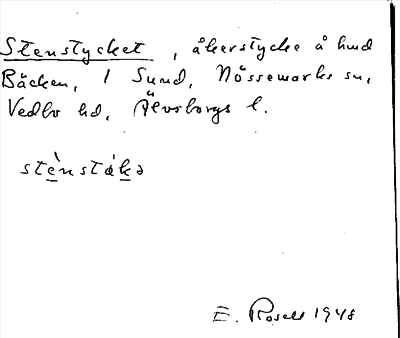 Stenstycket, åkerstycke å hmd
Bäcken, 1 Sund, Nössemarks sn,
Vedbo hd, Älvsborgs l.
stènstákə
E. Rosell 1948